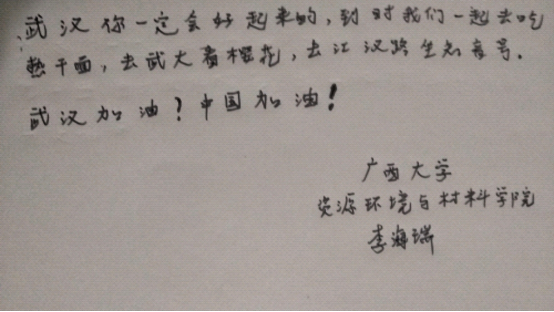 武汉你一定会好起来的，到时我们一起去吃
热干面，去武大看樱花，去江汉路坐知音号．
武汉加油！中国加油！
广西大学
资源环境与材料学院
李海瑞